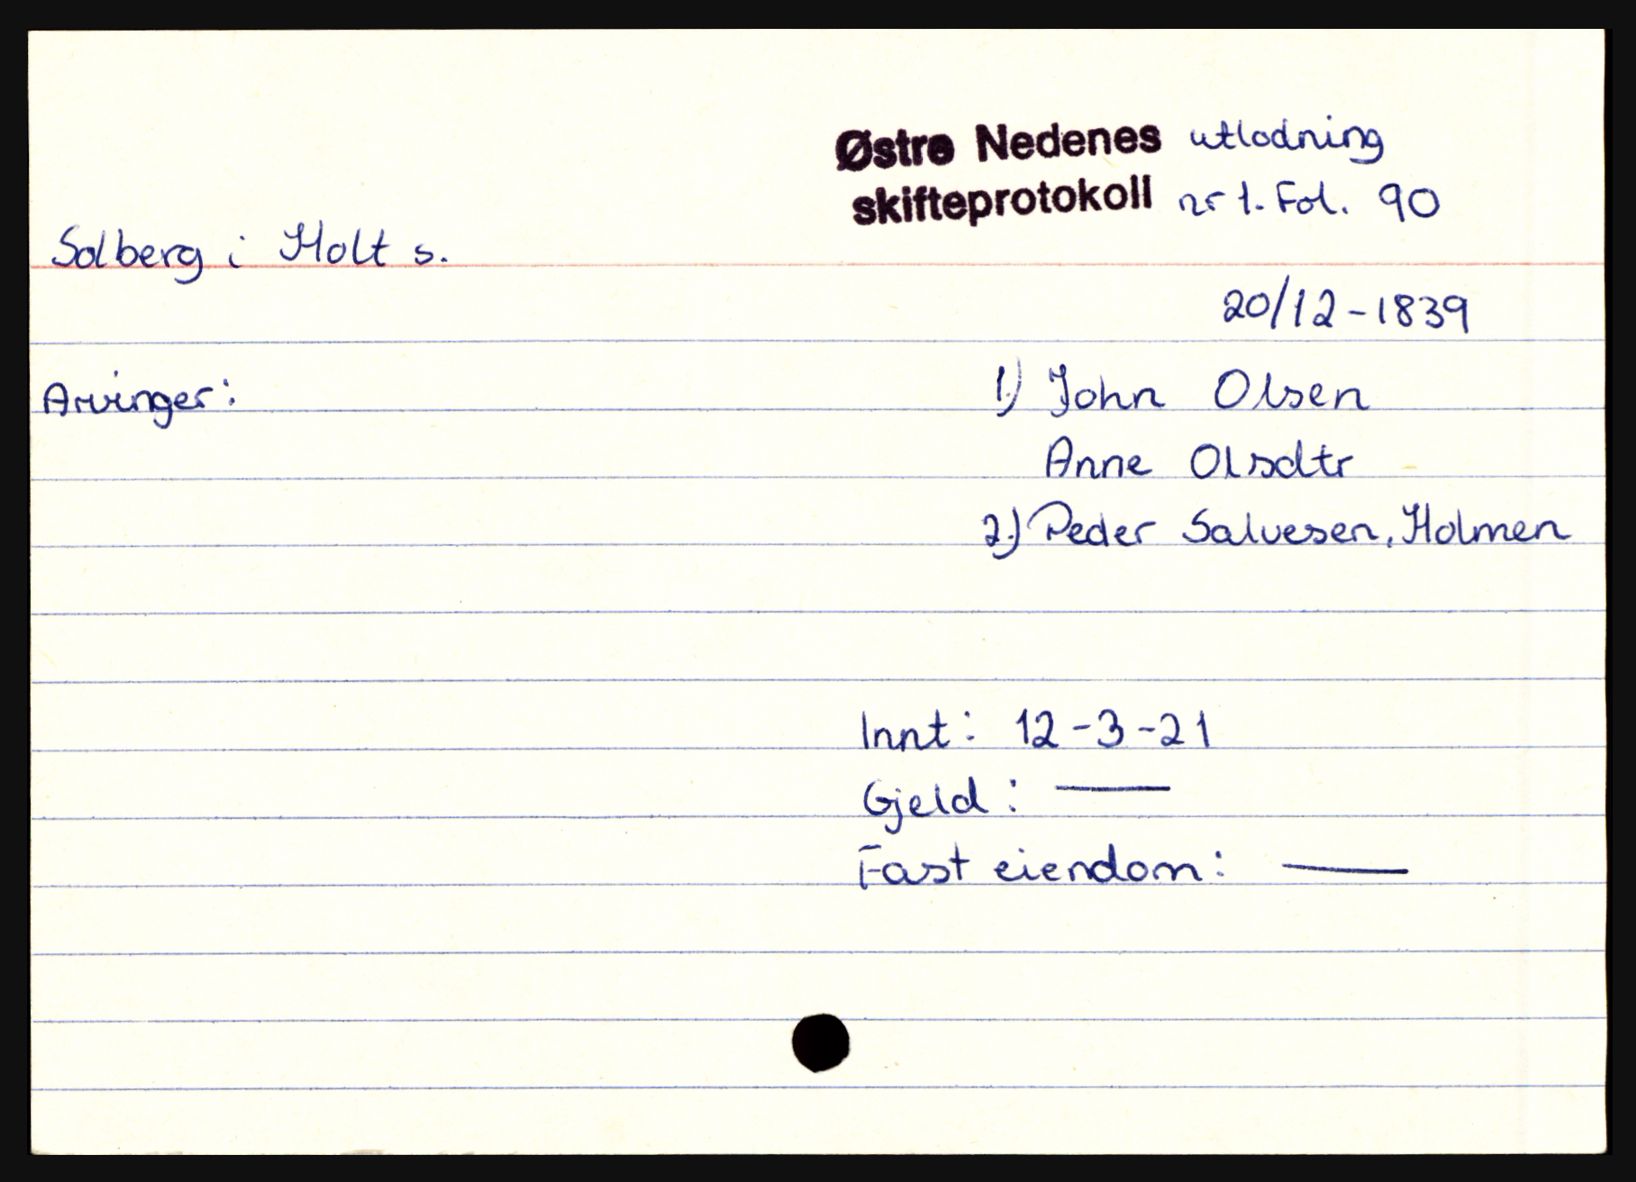 Østre Nedenes utlodning
skifteprotokoll nr 1. Fol. 90
Solberg i Holt s.
20/12-1839
Arvinger:
1.) John Olsen
Anne Olsdtr
2.) Peder Salvesen, Holmen
Innt: 12-3-21
Gjeld: —
Fast eiendom: —